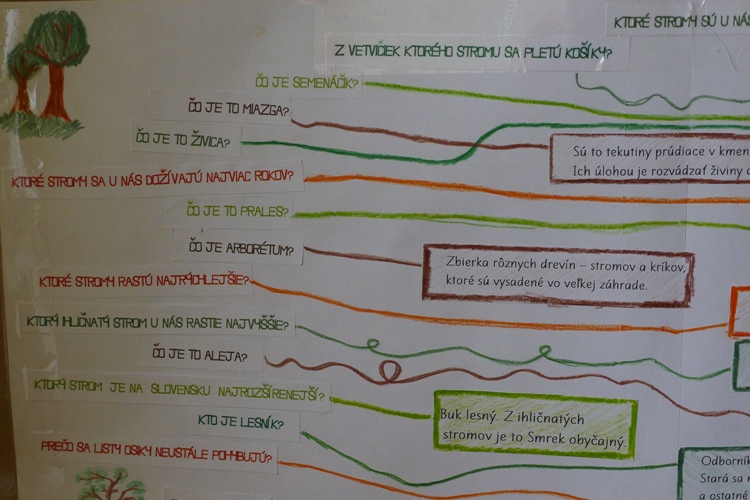 KTORÉ STROMY SÚ U NÁS
Z VETVIČIEK KTORÉHO STROMU SA PLETÚ KOŠÍKY?
ČO JE SEMENÁČIK?
ČO JE TO MIAZGA?
ČO JE TO ŽIVICA?
Sú to tekutiny prúdiace v kmen
Ich úlohou je rozvádzať živiny
KTORÉ STROMY SA U NÁS DOŽÍVAJÚ NAJVIAC ROKOV?
ČO JE TO PRALES?
ČO JE ARBORÉTUM?
Zbierka rôznych drevín – stromov a kríkov,
ktoré sú vysadené vo veľkej záhrade.
KTORÉ STROMY RASTÚ NAJRÝCHLEJŠIE?
KTORÝ IHLIČNATÝ STROM U NÁS RASTIE NAJVYŠŠIE?
ČO JE TO ALEJA?
KTORÝ STROM JE NA SLOVENSKU NAJROZŠÍRENEJŠÍ?
Buk lesný. Z ihličnatých
stromov je to Smrek obyčajný.
KTO JE LESNÍK?
PREČO SA LISTY OSIKY NEUSTÁLE POHYBUJÚ?
Odborník
Stará sa
a ostatné